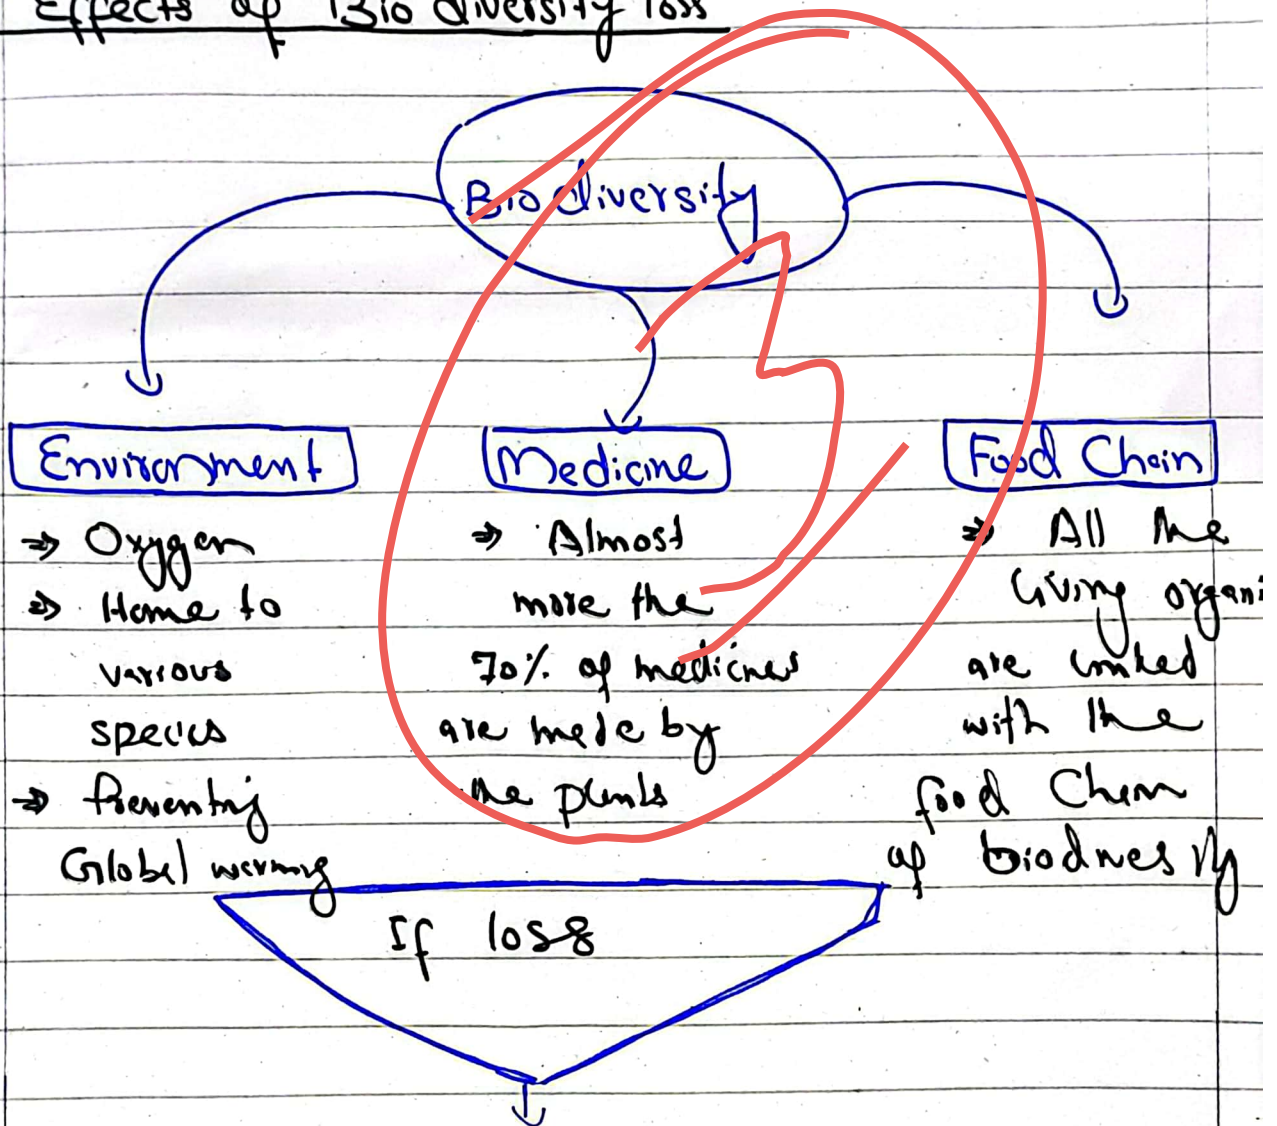 Effects of Bio diversity loss
Biodiversity
Environment
⇒ Oxygen
⇒ Home to
various
species
⇒ Preventing
Global warming
Medicine
⇒ Almost
more the
70% of medicines
are made by
the plants
Food Chain
⇒ All the
living organi
are linked
with the
food Chain
of biodivesity
If loss